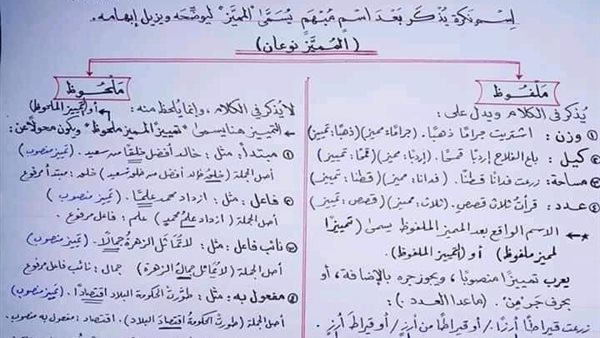 اسم نكرة يُذكر بَعْدَ اسمٍ مُبْهَمٍ يُسمَّى "المميَّز" ليوضّحه ويزيل إبهامه.
(المُميَّز نوعان)
مَلْفُوظ
يُذكر في الكلام ويدل على:
① وزن: اشتريت جرامًا ذهبًا. (جرامًا: مميز) (ذهبًا: تمييز)
② كيل: باع الفلاح إردبًا قمحًا. (إردبًا: مميز) (قمحًا: تمييز)
③ مساحة: زرعت فدانًا قطنًا. (فدانًا: مميز) (قطنًا: تمييز)
④ عدد: قرأت ثلاث قصصٍ. (ثلاث: مميز) (قصص: تمييز)
* الاسم الواقع بعد المميز الملفوظ يسمى (تمييزًا
لمميز ملفوظ) أو (تمييز ملفوظ).
يعرب تمييزًا منصوبًا، ويجوز جره بالإضافة، أو
بحرف جر "مِن". (ماعدا العدد):
زرعت قيراطًا أرزًا. / أو قيراطًا من أرزٍ / أو قيراطَ أرزٍ.
مَلْحُوظ
لا يُذكر في الكلام، وإنما يُلحظ منه:
التمييز هنا يسمى "تمييز المميز ملحوظ" ويكون محولًا عن:
أو (تمييز الملحوظ)
① مبتدأ: مثل: خالد أفضل خلقًا من سعيد. (تمييز منصوب)
أصل الجملة (خلق خالد أفضل من خلق سعيد) خلق: مبتدأ مرفوع
② فاعل: مثل: ازداد محمد علمًا. (تمييز منصوب)
أصل الجملة (ازداد علم محمد) علم: فاعل مرفوع.
③ نائب فاعل: مثل: لا تُماثل الزهرة جمالًا. (تمييز منصوب)
أصل الجملة (لا يُماثل جمال الزهرة) جمال: نائب فاعل مرفوع
④ مفعول به: مثل: طوّرت الحكومة البلاد اقتصادًا. (تمييز منصوب)
أصل الجملة (طورت الحكومة اقتصاد البلاد). اقتصاد: مفعول به منصوب